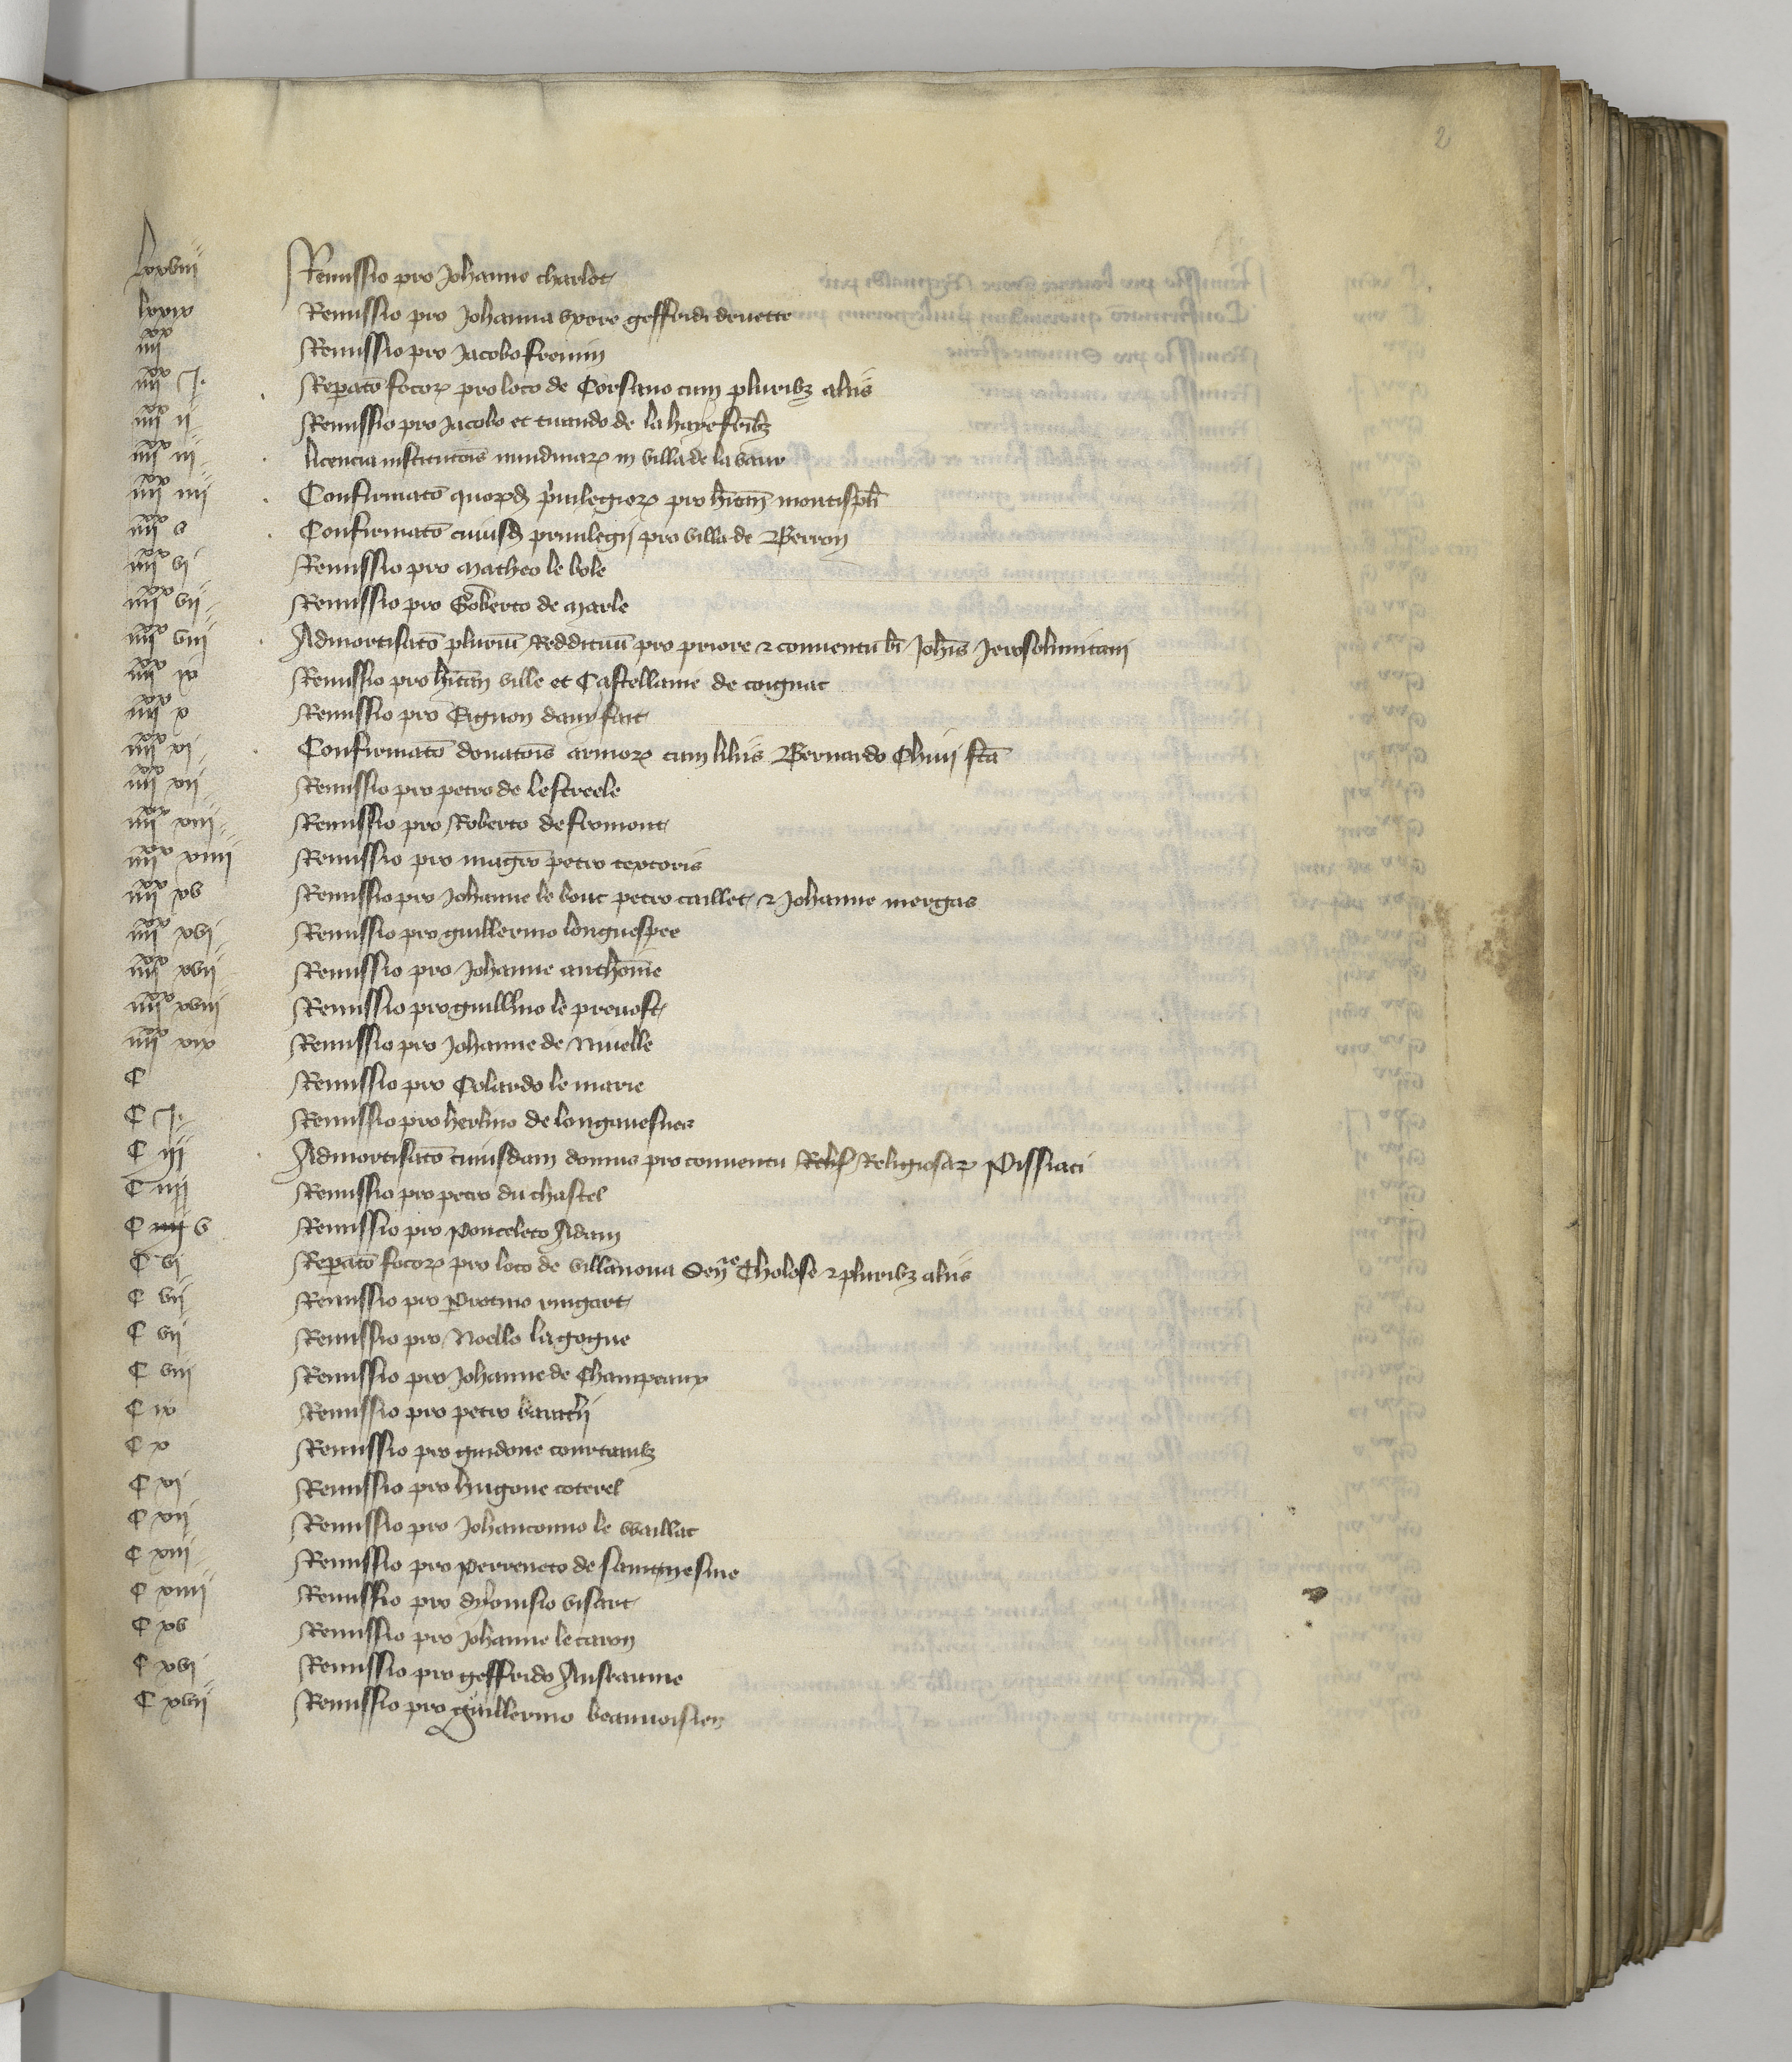 2
lxxviii Remissio pro Johanne charlot
lxxix Remissio pro Johanna uxore geffridi drouette
iiii^xx Remissio pro Jacobo fremin
iiii^xx J. Repato᷃ focoꝝ pro loco de Corsano cum pluribꝫ aliis
iiii^xx ii Remissio pro Jacobo et tuando de la haye fr̄ibꝫ
iiii^xx iii licencia institutois nundinaꝝ in villa de la vaur
iiii^xx iiii Confirmato᷃ quoꝝd̄ p̄uilegioꝝ pro h̄itan̄ montispl̄i
iiii^xx v Confirmato᷃ cuiusd̄ priuilegij pro villa de Berron
iiii^xx vj Remissio pro matheo le bole
iiii^xx vii Remissio pro Goberto de marle
iiii^xx viii Admortisato᷃ pluriū Reddituū pro priore ⁊ conuentu bī Joh̄is Jerosolimitani
iiii^xx ix Remissio pro h̄itan̄ ville et Castellanie de coignac
iiii^xx x Remissio pro Eignon danyfait
iiii^xx xi Confirmato᷃ donatois armoꝝ cum liliis Bernardo Oliuij fc̄a
iiii^xx xii Remissio pro petro de lestreele
iiii^xx xiii Remissio pro Roberto de fromont
iiii^xx xiiii Remissio pro magr̄o petro textoris
iiii^xx xv Remissio pro Johanne le bouc petro caillet ⁊ Johanne mergas
iiii^xx xvj Remissio pro guillermo longuespee
iiii^xx xvii Remissio pro Johanne anthōnie
iiii^xx xviii Remissio pro guillmo le preuost
iiii^xx xix Remissio pro Johanne de Niuelle
C Remissio pro Colardo le marie
C J. Remissio pro herlino de longauesnes
C iij Admortisato᷃ cuiusdam domus pro conuentu Relig Religiosaꝝ Pissiaci
C iiij Remissio pro petro du chastel
C iiij v Remissio pro Ponceleto Adam
C vj Repato᷃ focoꝝ pro loco de villanoua Sen̄^ie Tholose ⁊ pluribꝫ aliis
C vij Remissio pro Protino ringart
C vij Remissio pro Noello lagogue
C viii Remissio pro Johanne de Champeaux
C ix Remissio pro petro baratƺij
C x Remissio pro guidone courtaulx
C xj Remissio pro hugone coterel
C xij Remissio pro Johanconno le vaillac
C xiii Remissio pro Perreneto de sainctmesme
C xiiii Remissio pro dyonisio visart
C xv Remissio pro Johanne le caron
C xvj Remissio pro geffrido Anseaume
C xvij Remissio pro guillermo beauuoisien